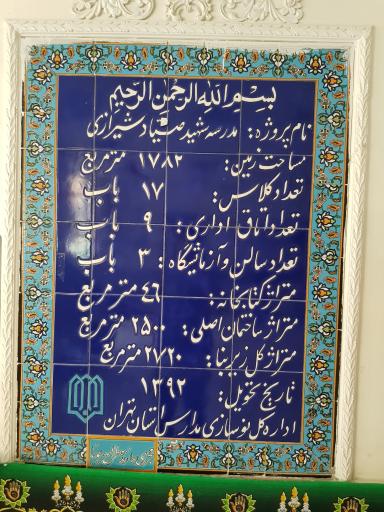 بسم الله الرحمن الرحیم
نام پروژه: مدرسه شهید صیاد شیرازی
مساحت زمین: ۱۷۸۲ مترمربع
تعداد کلاس: ۱۷ باب
تعداد اتاق اداری: ۹ باب
تعداد سالن و آزمایشگاه: ۳ باب
متراژ کتابخانه: ۴۶ مترمربع
متراژ ساختمان اصلی: ۲۵۰۰ مترمربع
متراژ کل زیربنا: ۲۷۲۰ مترمربع
تاریخ تحویل: ۱۳۹۲
اداره کل نوسازی مدارس استان تهران